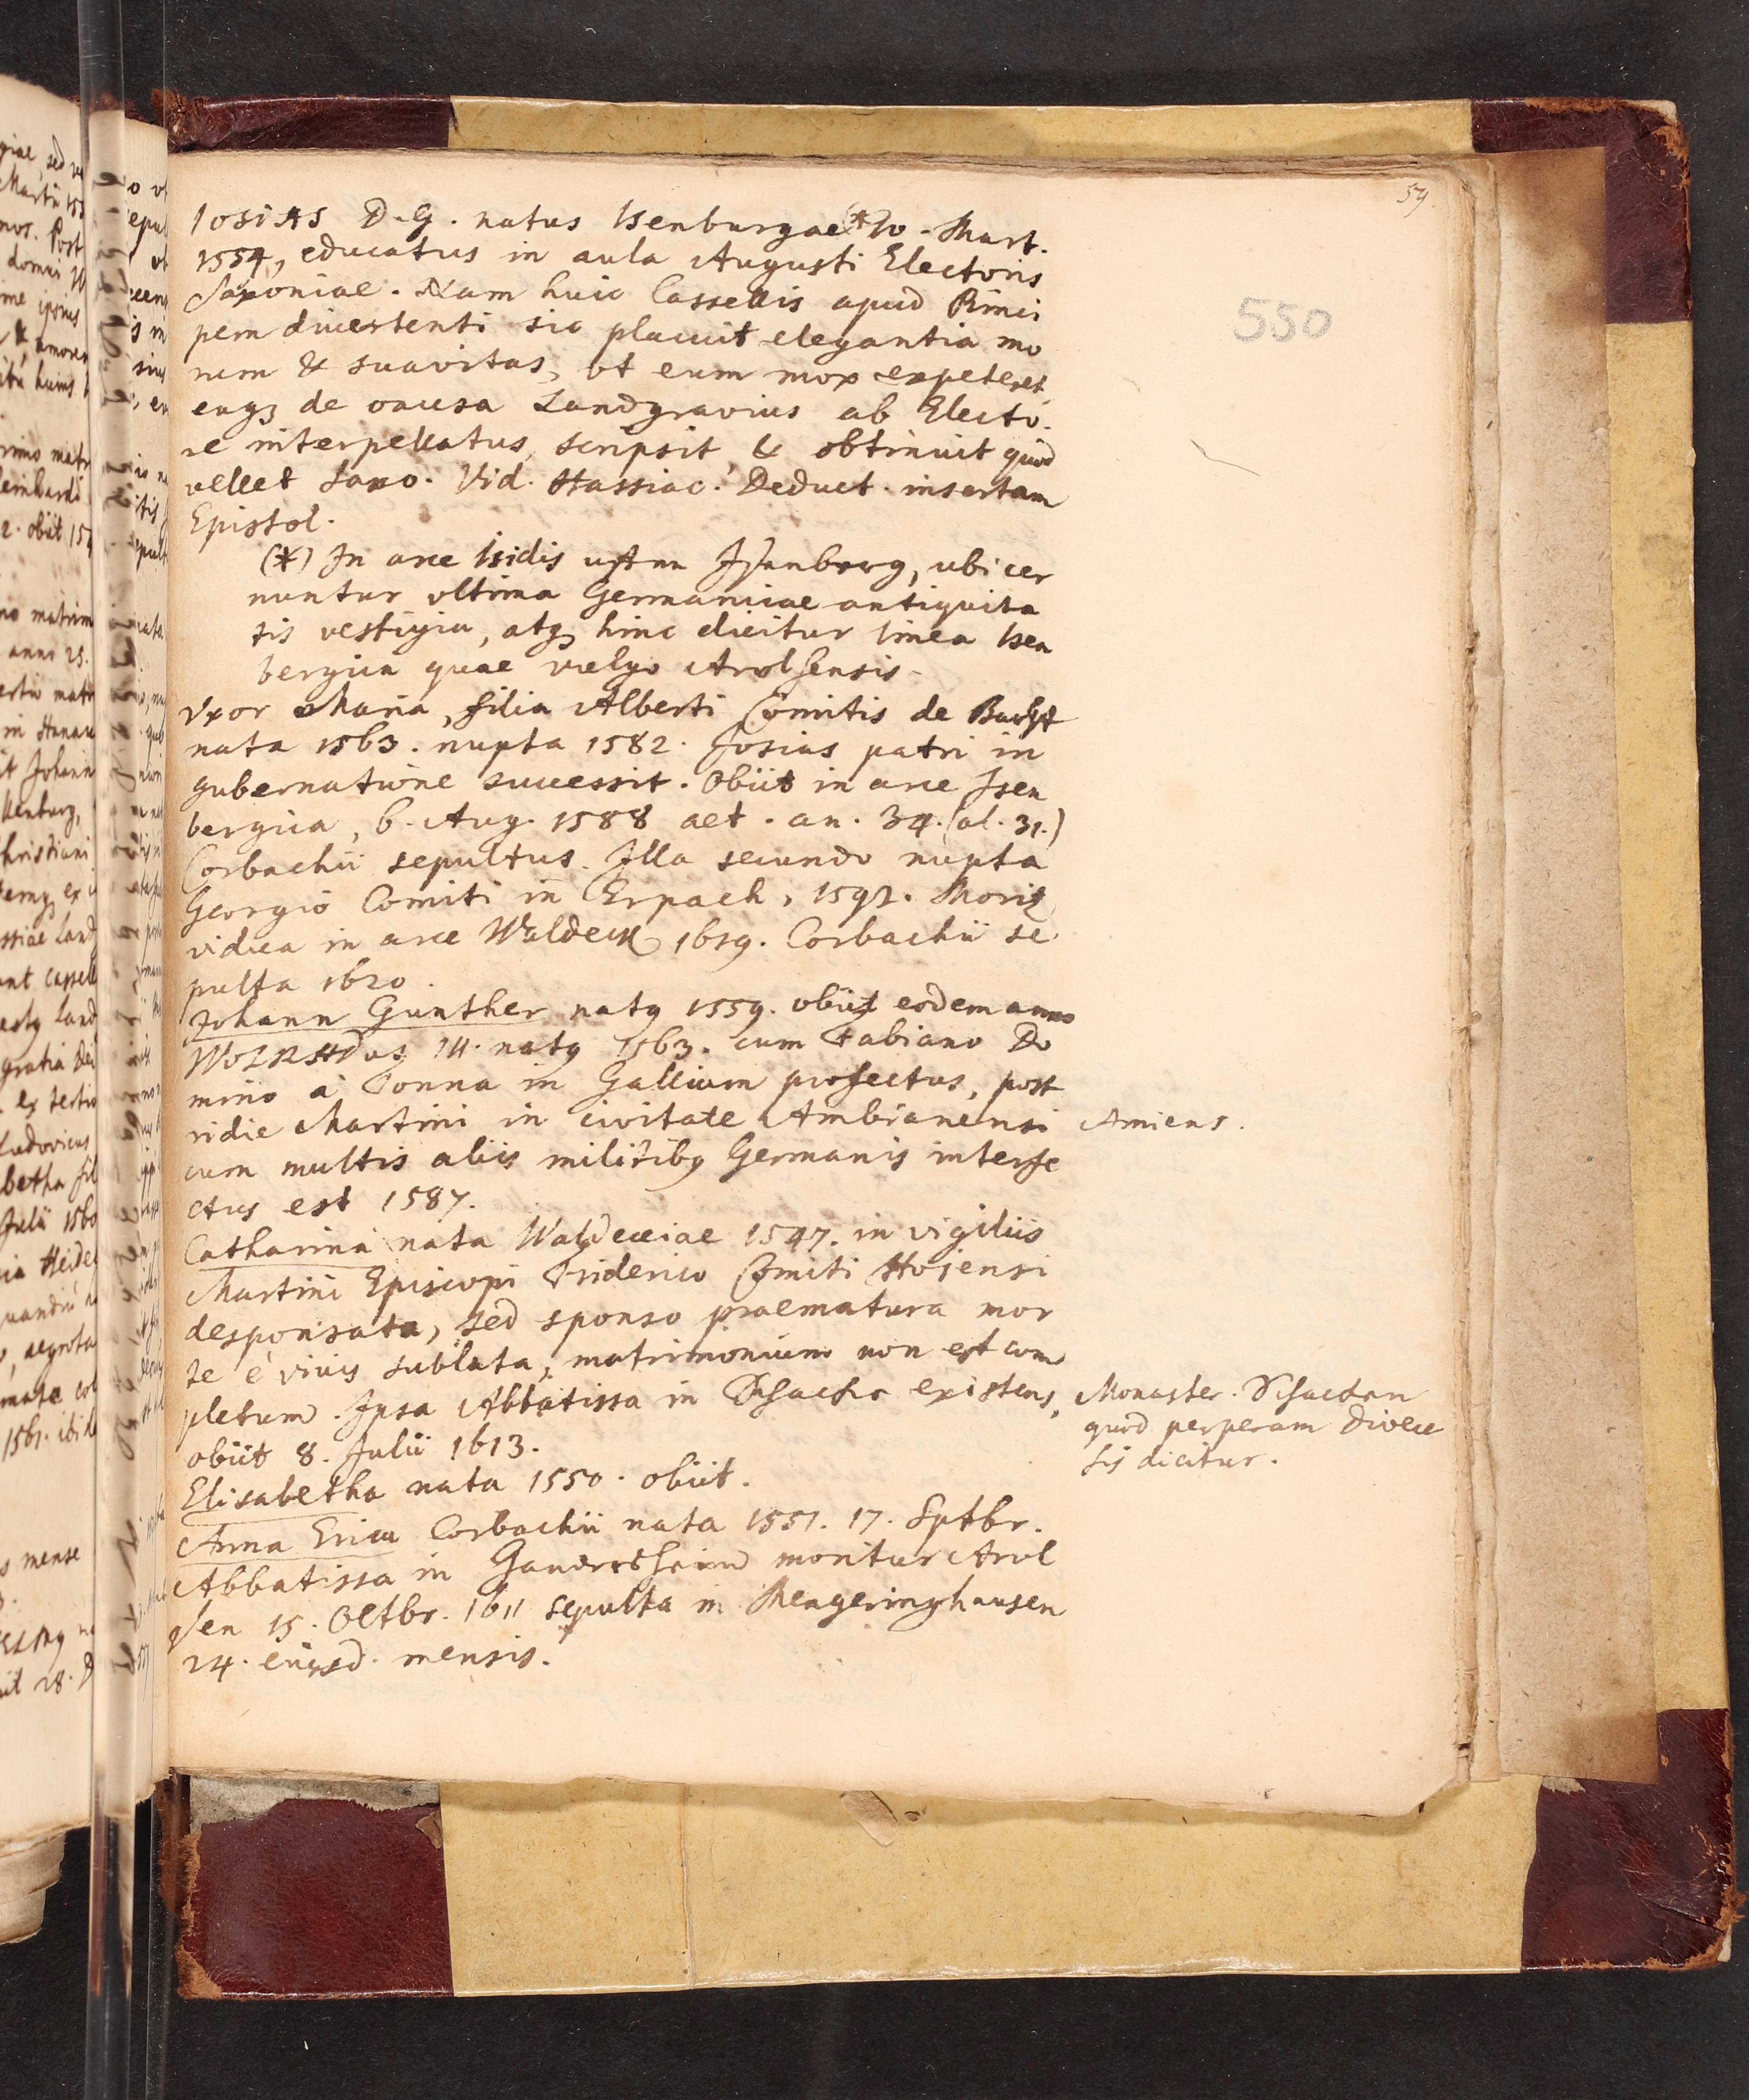 59.
550
IOSIAS D. G. natus Isenburgae (*) 10. Mart.
1554, educatus in aula Augusti Electoris
Saxoniae. Nam huic Cassellis apud Princi
pem divertenti sic placuit elegantia mo
rum & suavitas, vt eum mox expeteret,
eaqꝫ de caussa Landgravius ab Electo-
re interpellatus, scripsit, & obtinuit quod
vellet Saxo. Vid. Hassiac. Deduct. insertam
Epistol.
(*) In arce Isidis Isenberg, ubi cer
nuntur vltima Germanicae antiquita
tis vestigia, atqꝫ hinc dicitur linea Isen
bergica quae vulgo Arolsensis.
Vxor Maria, filia Alberti Comitis de Barby
nata 1563. nupta 1582. Josias patri in
gubernatione successit. Obiit in arce Isen
bergica, 6. Aug. 1588 aet. an. 34. (al. 31.)
Corbachii sepultus. Illa secundo nupta
Georgio Comiti in Erpach, 1592. Moritꝫ
vidua in arce Waldeck 1619. Corbachii se
pulta 1620.
Johann Gunther natꝰ 1559. obiit eodem anno
WOLRADus III. natꝰ 1563. cum Fabiano Do
mino à Donna in Galliam profectus, post
ridie Martini in civitate Ambianensi
cum multis aliis militibꝰ Germanis interfe
ctus est 1587.
Amiens.
Catharina nata Waldecciae 1547. in vigiliis
Martini Episcopi Friderico Comiti Hojensi
desponsata, sed sponso praematura mor
te è vivis sublata, matrimonium non est com
pletum. Ipsa Abbatissa in Schacken existens,
obiit 8. Julii 1613.
Monaster. Schacken
quod perperam
dicitur.
Elisabetha nata 1550. obiit.
Anna Erica Corbachii nata 1551. 17. Sptbr.
Abbatissa in Gandersheim moritur Arol
sen 15. Octbr. 1611 sepulta in Mengeringhausen
24. eiusd. mensis.